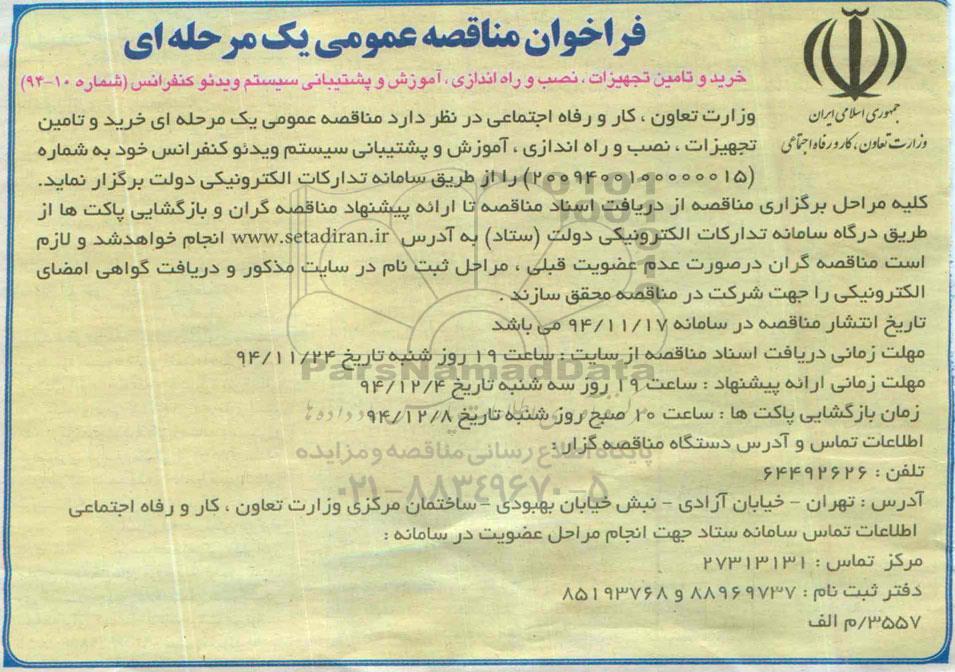 فراخوان مناقصه عمومی یک مرحله ای
خرید و تامین تجهیزات ، نصب و راه اندازی ، آموزش و پشتیبانی سیستم ویدئو کنفرانس (شماره ۱۰-۹۴)
جمهوری اسلامی ایران
وزارت تعاون، کار و رفاه اجتماعی
وزارت تعاون ، کار و رفاه اجتماعی در نظر دارد مناقصه عمومی یک مرحله ای خرید و تامین
تجهیزات ، نصب و راه اندازی ، آموزش و پشتیبانی سیستم ویدئو کنفرانس خود به شماره
(۲۰۰۹۴۰۰۱۰۰۰۰۰۰۱۵) را از طریق سامانه تدارکات الکترونیکی دولت برگزار نماید.
کلیه مراحل برگزاری مناقصه از دریافت اسناد مناقصه تا ارائه پیشنهاد مناقصه گران و بازگشایی پاکت ها از
طریق درگاه سامانه تدارکات الکترونیکی دولت (ستاد) به آدرس www.setadiran.ir انجام خواهدشد و لازم
است مناقصه گران درصورت عدم عضویت قبلی ، مراحل ثبت نام در سایت مذکور و دریافت گواهی امضای
الکترونیکی را جهت شرکت در مناقصه محقق سازند .
تاریخ انتشار مناقصه در سامانه ۹۴/۱۱/۱۷ می باشد
مهلت زمانی دریافت اسناد مناقصه از سایت : ساعت ۱۹ روز شنبه تاریخ ۹۴/۱۱/۲۴
مهلت زمانی ارائه پیشنهاد : ساعت ۱۹ روز سه شنبه تاریخ ۹۴/۱۲/۴
زمان بازگشایی پاکت ها : ساعت ۱۰ صبح روز شنبه تاریخ ۹۴/۱۲/۸
ParsNamadData
اطلاعات تماس و آدرس دستگاه مناقصه گزار :
پایگاه اطلاع رسانی مناقصه و مزایده
تلفن : ۶۴۴۹۲۶۲۶
۰۲۱-۸۸۳۴۹۶۷۰-۵
آدرس : تهران - خیابان آزادی - نبش خیابان بهبودی -ساختمان مرکزی وزارت تعاون ، کار و رفاه اجتماعی
اطلاعات تماس سامانه ستاد جهت انجام مراحل عضویت در سامانه :
مرکز تماس : ۲۷۳۱۳۱۳۱
دفتر ثبت نام : ۸۸۹۶۹۷۳۷ و ۸۵۱۹۳۷۶۸
۳۵۵۷/م الف